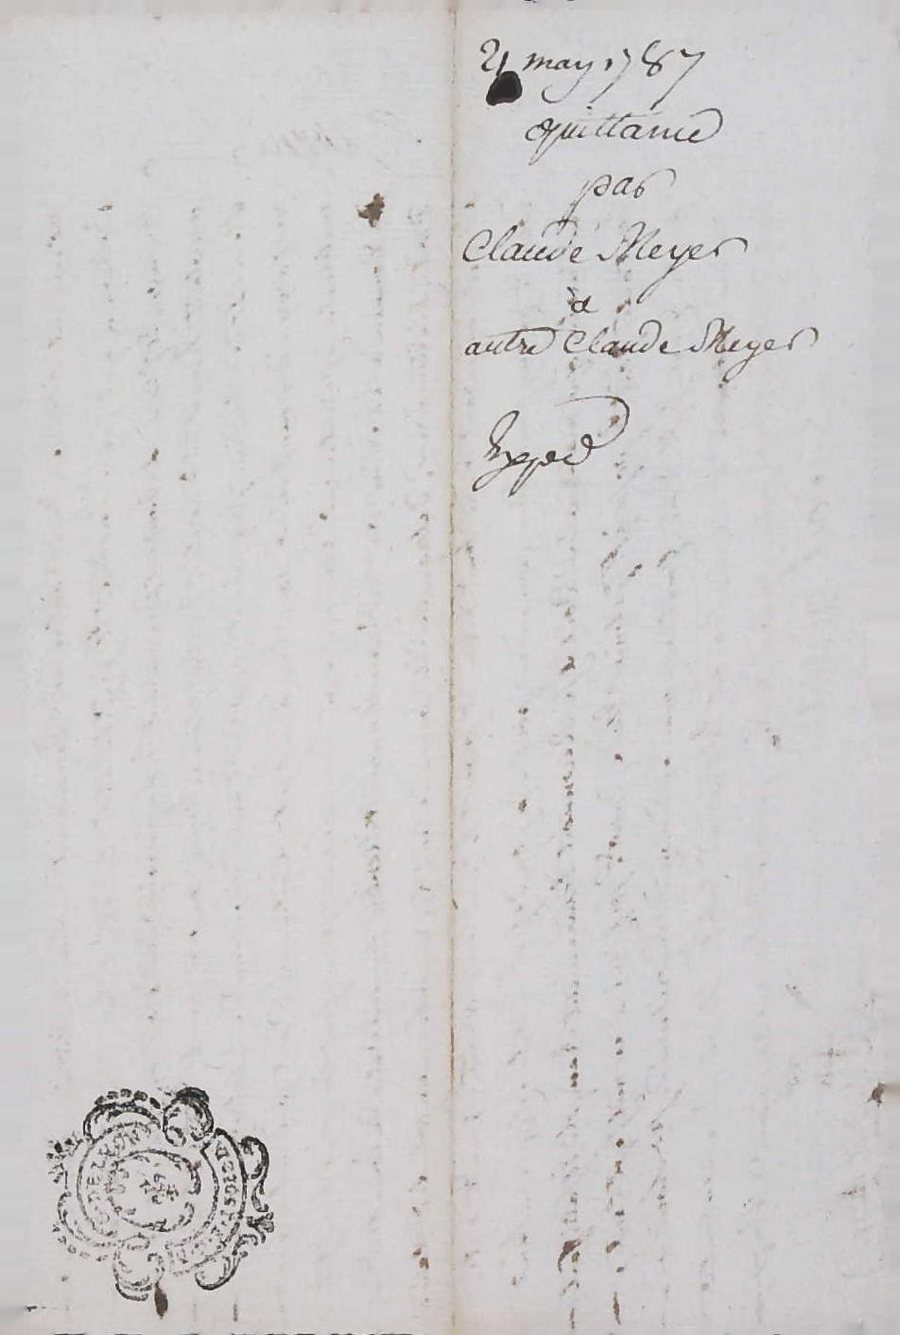 21 may 1787
Quittance
par
Claude Meyer
a
autre Claude Meyer
Exped
DE LYON